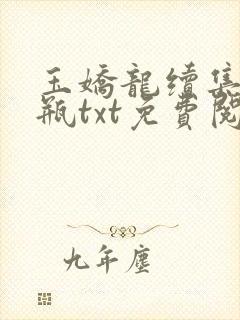 玉嬌龍續集
瓶txt免費閱
九年塵